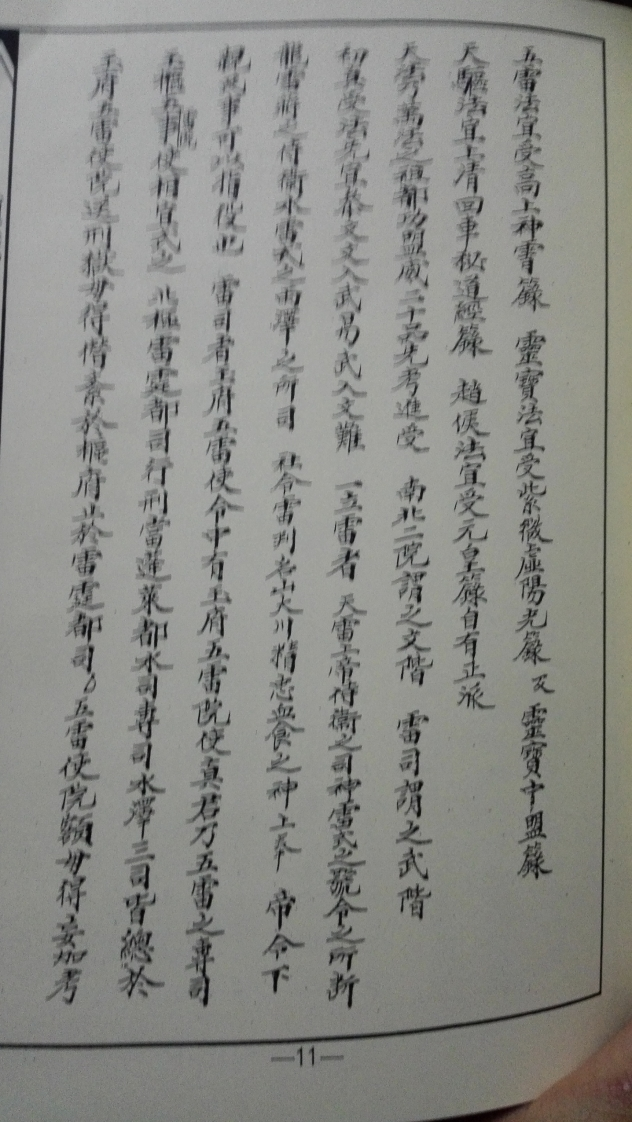 五雷法宜受高上神霄籙 靈寶法宜受紫微虛陽光籙 及 靈寶中盟籙
天驅法宜上清回車秘道經籙 趙侯法宜受元皇籙自有正派
天雲乃萬法之祖都功盟威二十品先考進受 南北二院謂之文階 雷司謂之武階
初真受法先宜奉文文入武易武入文難 一立雷者 天雷上帝侍衛之司神雷天之號令之所斷
龍雷將之侍衛水雷天之雨澤之所司 社令雷判名山大川精忠血食之神上奉 帝令下
親民事可以指役也 雷司者玉府五雷使令中有玉府五雷院使真君乃五雷之專司
玉樞五事使相宜式之 北極雷霆都司行刑當蓬萊都水司專司水澤三司皆總於
玉府五雷使院送刑獄毋得僭紊於樞府止於雷霆都司 五雷使院額毋得妄加考
—11—